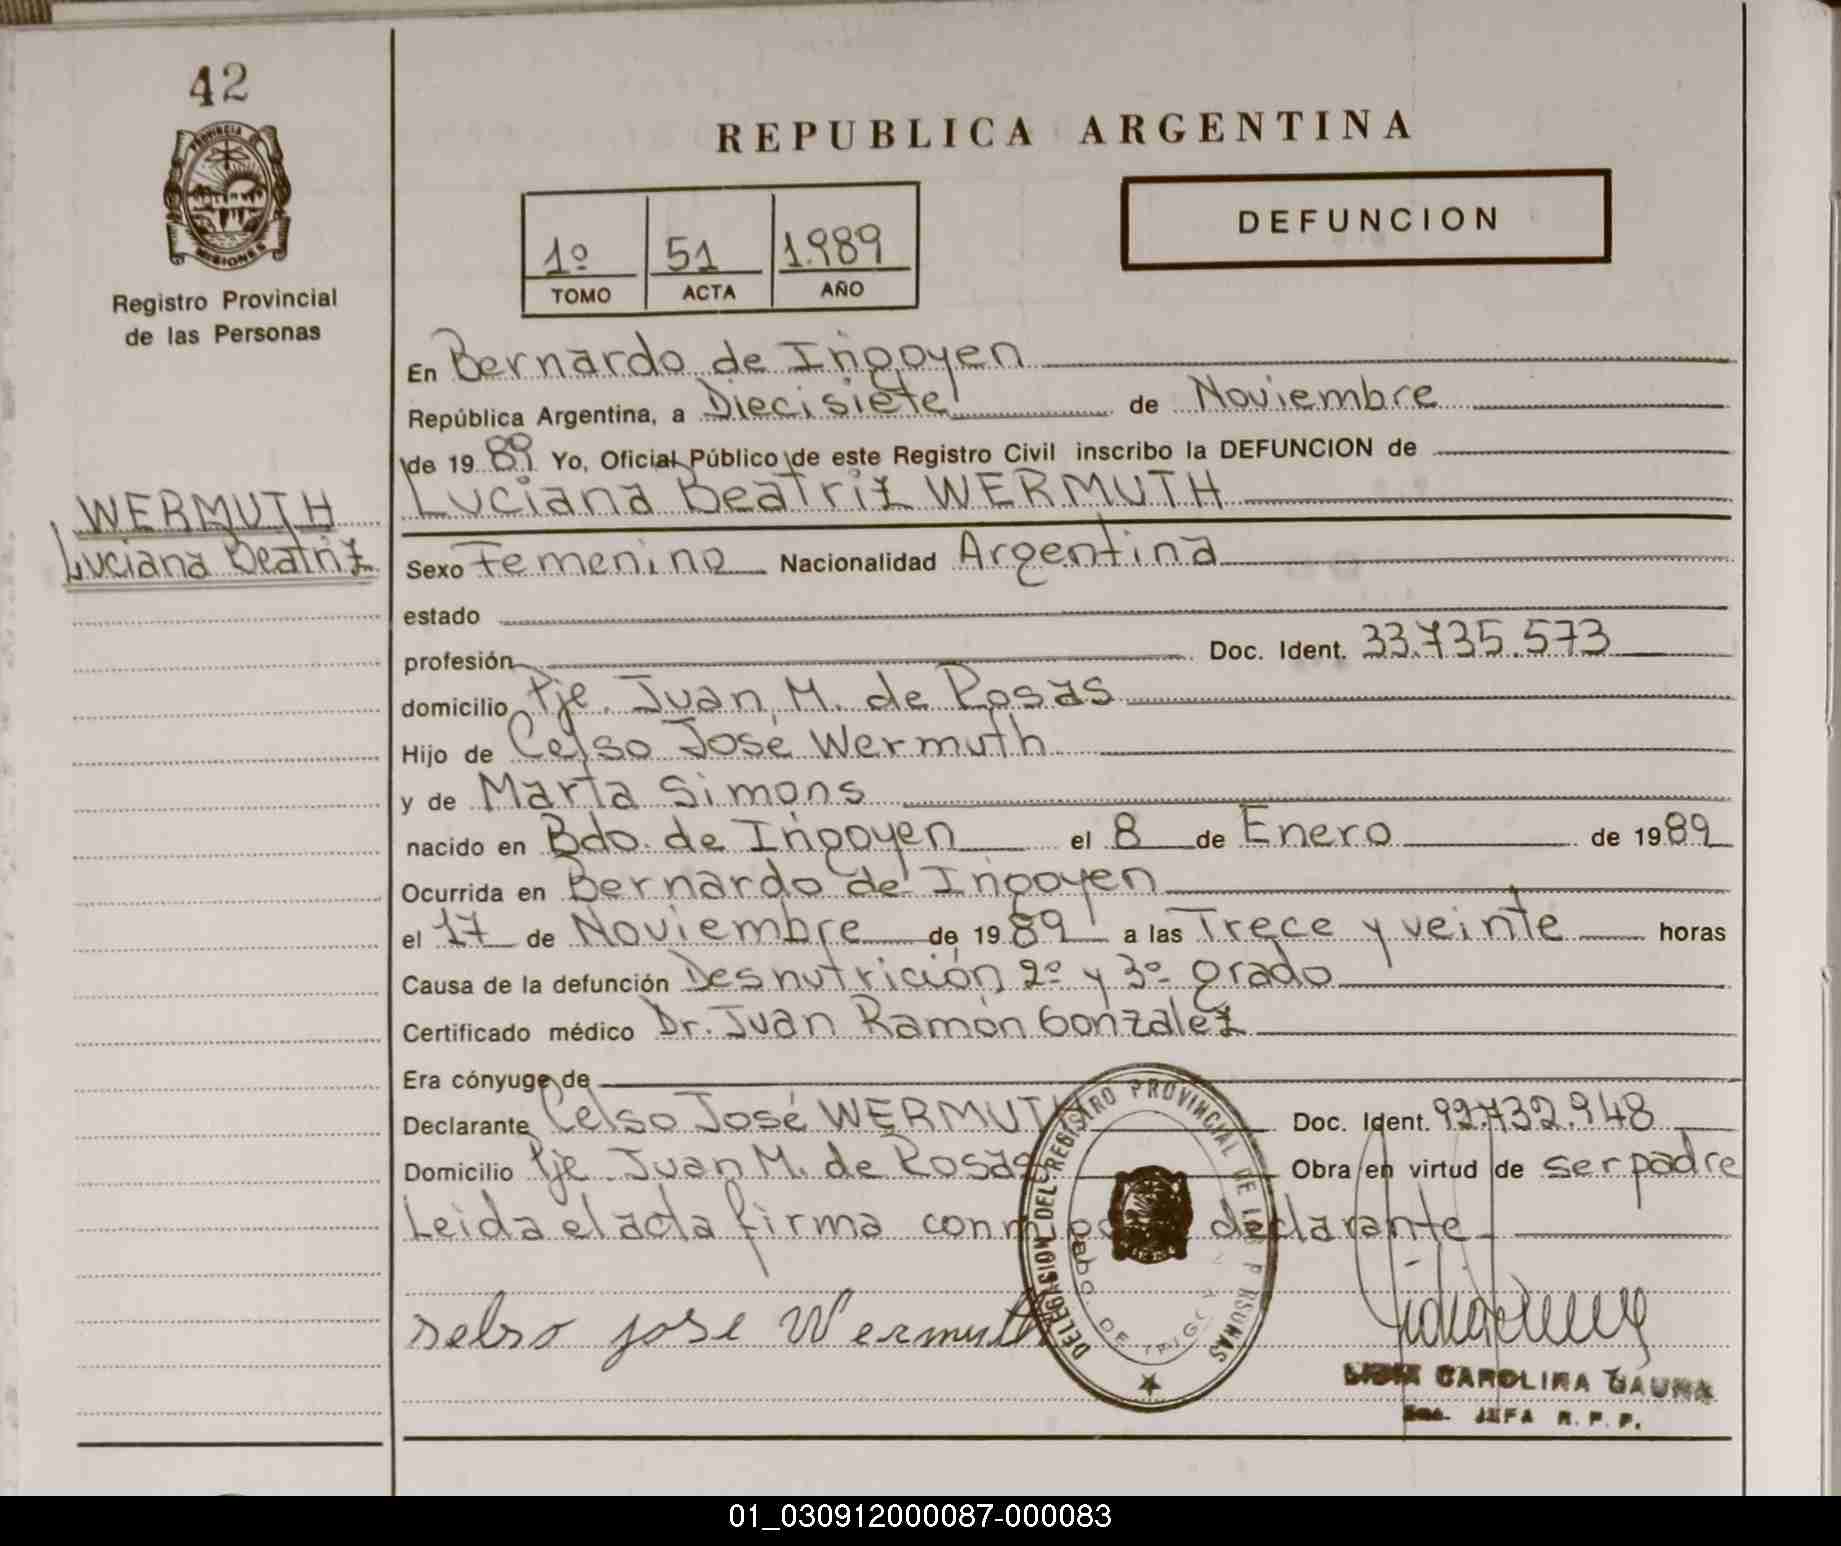 42
PROVINCIA
MISIONES
Registro Provincial
de las Personas
WERMUTH
Luciana Beatriz
REPUBLICA ARGENTINA
1º 51 1.989
TOMO ACTA AÑO
DEFUNCION
En Bernardo de Irigoyen
República Argentina, a Diecisiete de Noviembre
de 19 89 Yo, Oficial Público de este Registro Civil inscribo la DEFUNCION de
Luciana Beatriz WERMUTH
Sexo Femenino Nacionalidad Argentina
estado
profesión Doc. Ident. 33.735.573
domicilio Pje. Juan M. de Rosas
Hijo de Celso José Wermuth
y de Marta Simons
nacido en Bdo. de Irigoyen el 8 de Enero de 1989
Ocurrida en Bernardo de Irigoyen
el 17 de Noviembre de 19 89 a las Trece y veinte horas
Causa de la defunción Desnutrición 2º y 3º grado
Certificado médico Dr. Juan Ramón Gonzalez
Era cónyuge de
Declarante Celso José WERMUTH Doc. Ident. 92.732.948
Domicilio Pje. Juan M. de Rosas Obra en virtud de ser padre
Leida el acta firma conmigo declarante
DELEGACION DEL REGISTRO PROVINCIAL DE LAS PERSONAS
BDO. DE IRIGOYEN
selso jose Wermuth
CAROLINA GAUNA
JEFA R. P. P.
01_030912000087-000083